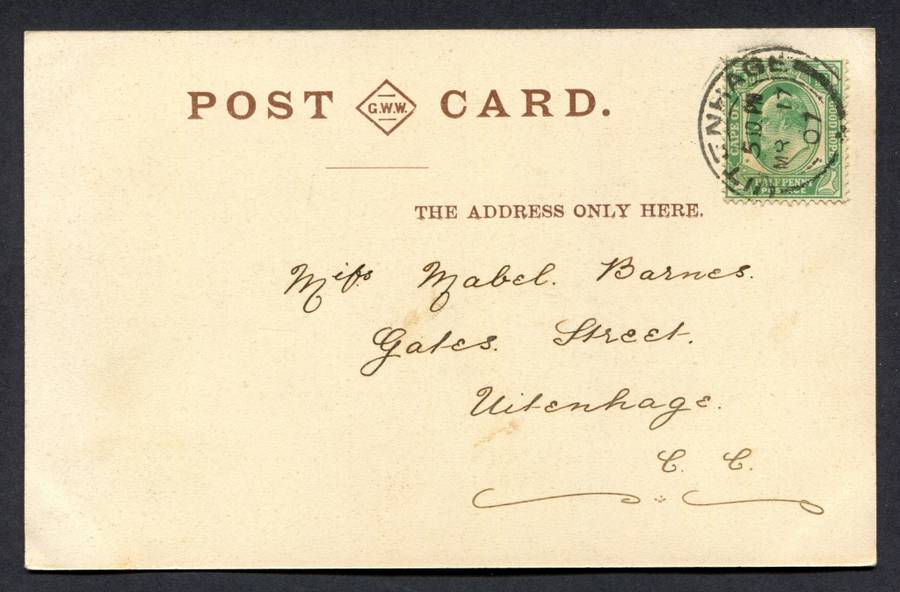 POST G.W.W. CARD.
THE ADDRESS ONLY HERE.
Miſs Mabel. Barnes.
Gates. Street.
Uitenhage.
C. C.
UITENHAGE
CAPE OF GOOD HOPE
HALF PENNY
POSTAGE